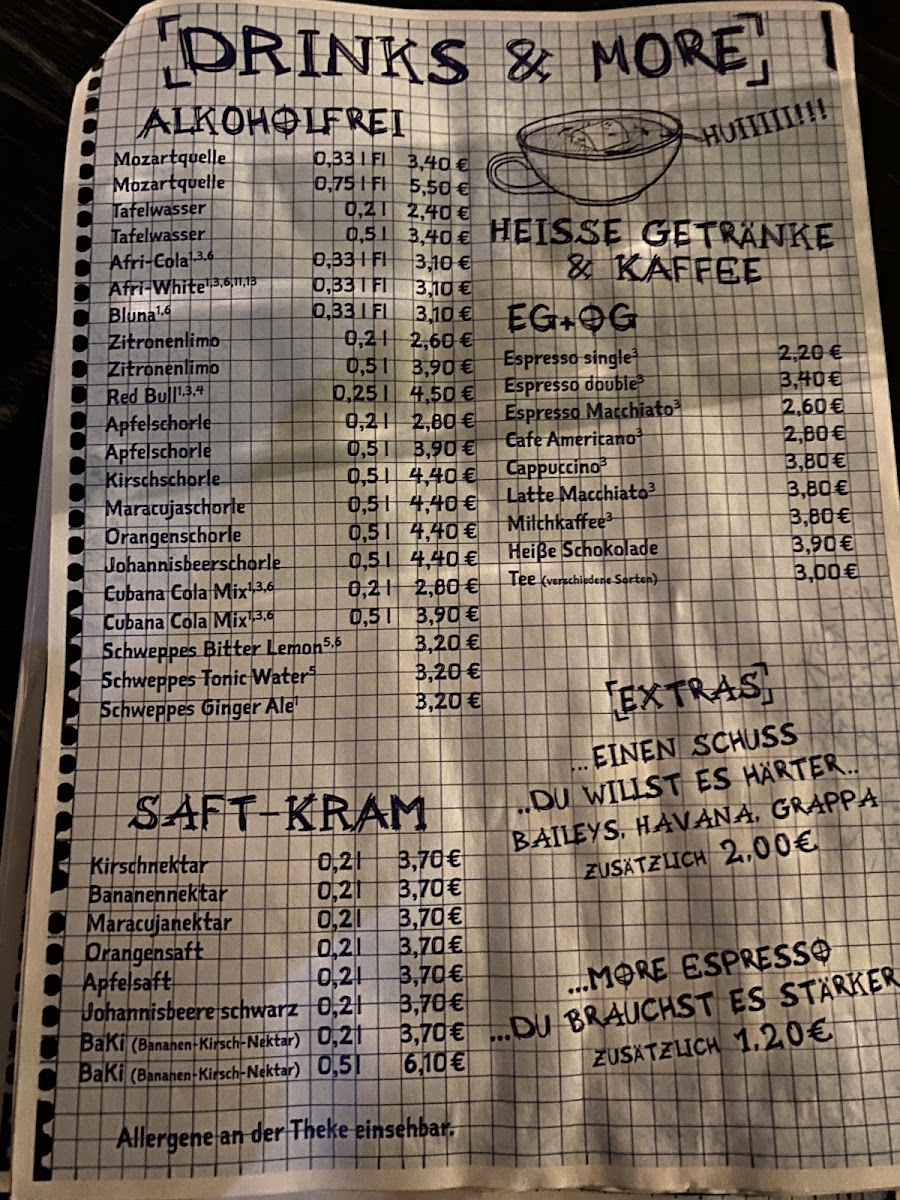 DRINKS & MORE
ALKOHOLFREI
Mozartquelle 0,33 l Fl 3,40 €
Mozartquelle 0,75 l Fl 5,50 €
Tafelwasser 0,2 l 2,40 €
Tafelwasser 0,5 l 3,40 €
Afri-Cola1,3,6 0,33 l Fl 3,10 €
Afri-White1,3,6,11,13 0,33 l Fl 3,10 €
Bluna1,6 0,33 l Fl 3,10 €
Zitronenlimo 0,2 l 2,60 €
Zitronenlimo 0,5 l 3,90 €
Red Bull1,3,4 0,25 l 4,50 €
Apfelschorle 0,2 l 2,80 €
Apfelschorle 0,5 l 3,90 €
Kirschschorle 0,5 l 4,40 €
Maracujaschorle 0,5 l 4,40 €
Orangenschorle 0,5 l 4,40 €
Johannisbeerschorle 0,5 l 4,40 €
Cubana Cola Mix1,3,6 0,2 l 2,80 €
Cubana Cola Mix1,3,6 0,5 l 3,90 €
Schweppes Bitter Lemon5,6 3,20 €
Schweppes Tonic Water5 3,20 €
Schweppes Ginger Ale1 3,20 €
SAFT-KRAM
Kirschnektar 0,2 l 3,70 €
Bananennektar 0,2 l 3,70 €
Maracujanektar 0,2 l 3,70 €
Orangensaft 0,2 l 3,70 €
Apfelsaft 0,2 l 3,70 €
Johannisbeere schwarz 0,2 l 3,70 €
BaKi (Bananen-Kirsch-Nektar) 0,2 l 3,70 €
BaKi (Bananen-Kirsch-Nektar) 0,5 l 6,10 €
Allergene an der Theke einsehbar.
HUIIIII!!!
HEISSE GETRÄNKE
& KAFFEE
EG+OG
Espresso single3 2,20 €
Espresso double3 3,40 €
Espresso Macchiato3 2,60 €
Cafe Americano3 2,80 €
Cappuccino3 3,80 €
Latte Macchiato3 3,80 €
Milchkaffee3 3,80 €
Heiße Schokolade 3,90 €
Tee (verschiedene Sorten) 3,00 €
EXTRAS
...EINEN SCHUSS
..DU WILLST ES HÄRTER..
BAILEYS, HAVANA, GRAPPA
ZUSÄTZLICH 2,00€
...MORE ESPRESSO
...DU BRAUCHST ES STÄRKER
ZUSÄTZLICH 1,20€